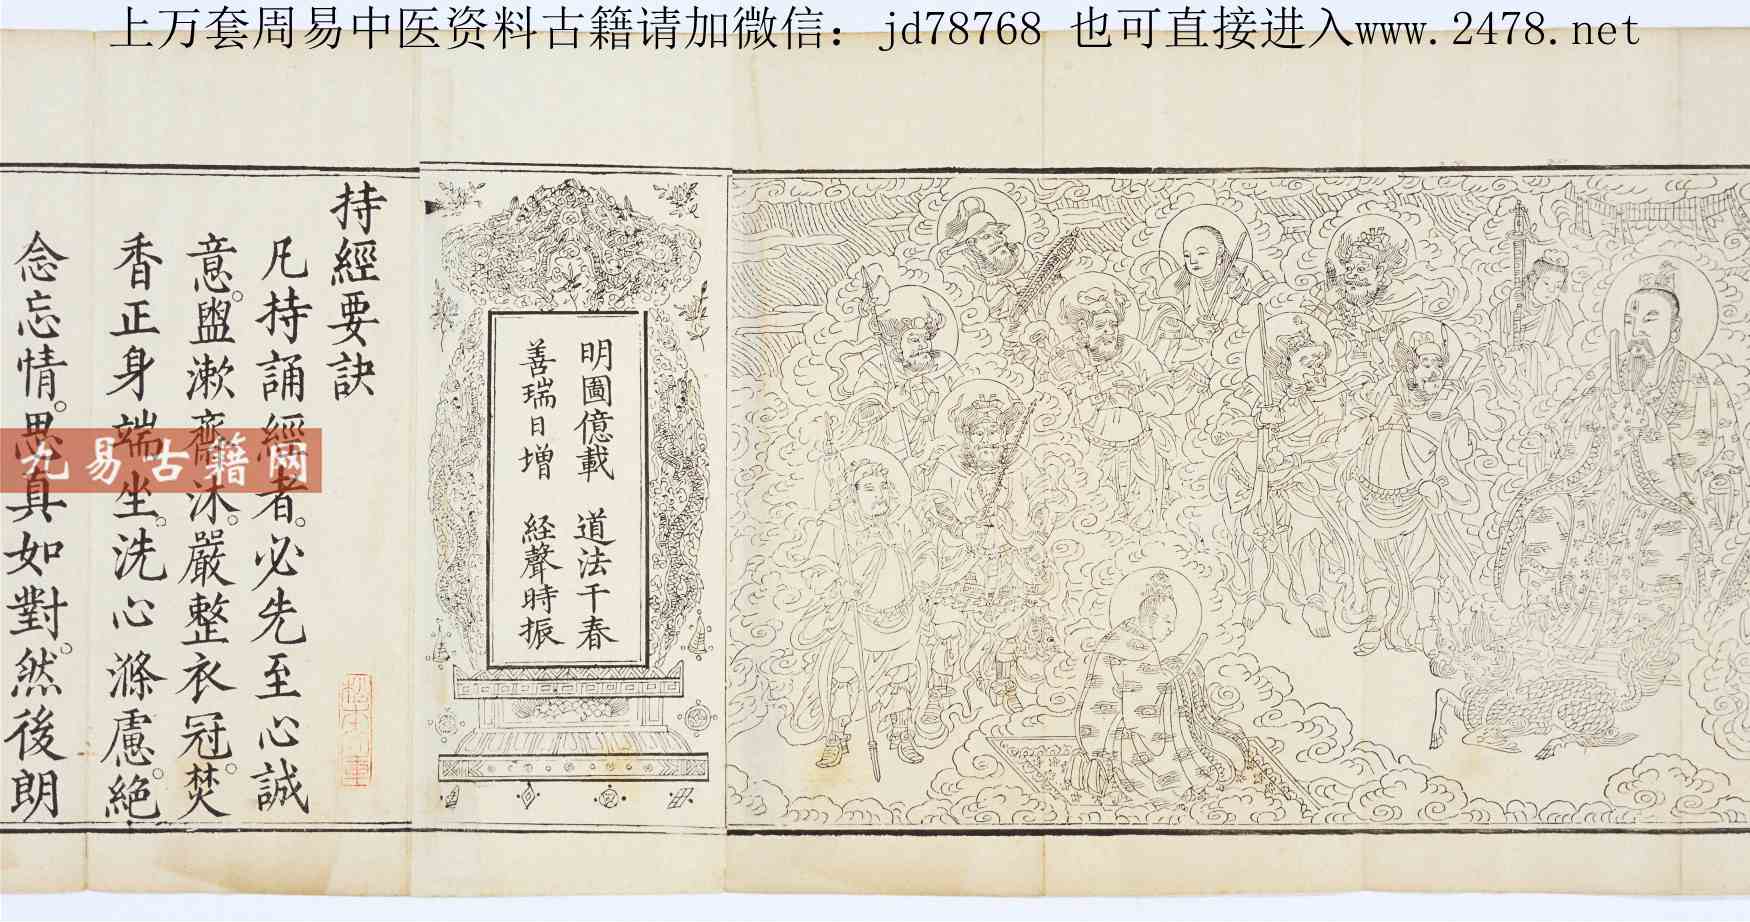 上万套周易中医资料古籍请加微信：jd78768 也可直接进入www.2478.net
明圖億載 道法千春
善瑞日增 経聲時振
持經要訣
凡持誦經者。必先至心誠
意。盥漱齋沐。嚴整衣冠。焚
香正身端坐。洗心滌慮。絕
念忘情。思真如對。然後朗
九易古籍网